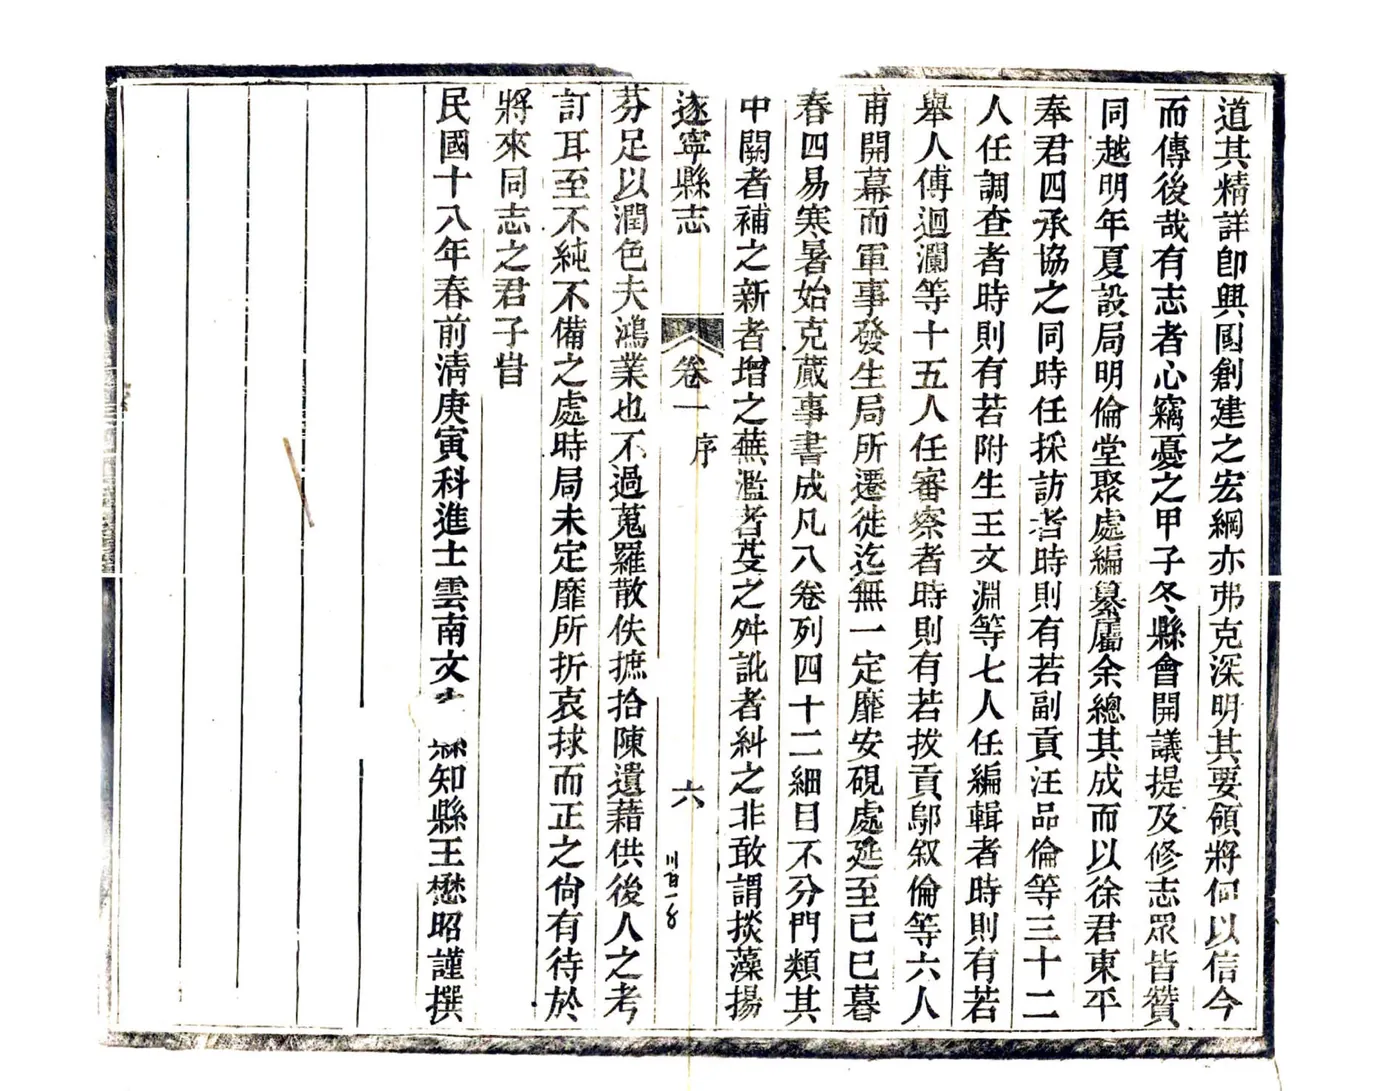 道其精詳卽輿圖創建之宏綱亦弗克深明其要領將何以信今
而傳後哉有志者心竊憂之甲子冬縣會開議提及修志眾皆贊
同越明年夏設局明倫堂聚處編纂屬余總其成而以徐君東平
奉君四承協之同時任採訪者時則有若副貢汪品倫等三十二
人任調查者時則有若附生王文淵等七人任編輯者時則有若
舉人傅迴瀾等十五人任審察者時則有若拔貢鄔叙倫等六人
甫開幕而軍事發生局所遷徙迄無一定靡安硯處延至己巳暮
春四易寒暑始克蕆事書成凡八卷列四十二細目不分門類其
中闕者補之新者增之蕪濫者芟之舛訛者糾之非敢謂掞藻揚
遂寧縣志
卷一
序
六
芬足以潤色夫鴻業也不過蒐羅散佚摭拾陳遺藉供後人之考
訂耳至不純不備之處時局未定靡所折衷捄而正之尙有待於
將來同志之君子旹
民國十八年春前清庚寅科進士雲南文 知縣王懋昭謹撰